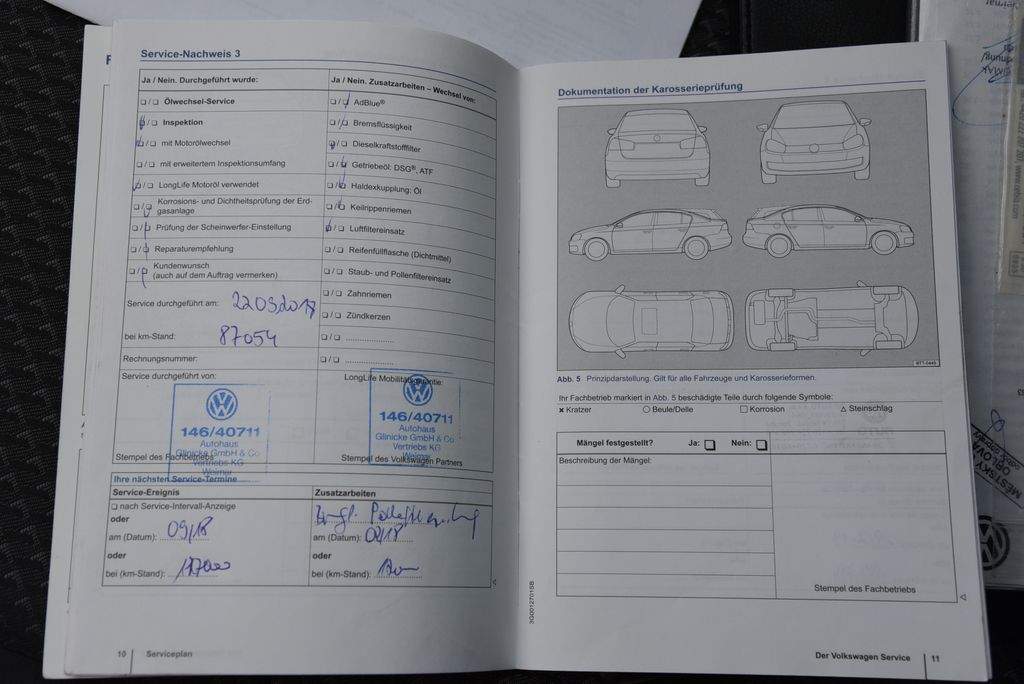 Service-Nachweis 3
Ja / Nein. Durchgeführt wurde:
❑ / ❑ Ölwechsel-Service
❑ / ❑ Inspektion
❑ / ❑ mit Motorölwechsel
❑ / ❑ mit erweitertem Inspektionsumfang
❑ / ❑ LongLife Motoröl verwendet
❑ / ❑ Korrosions- und Dichtheitsprüfung der Erd-
gasanlage
❑ / ❑ Prüfung der Scheinwerfer-Einstellung
❑ / ❑ Reparaturempfehlung
❑ / ❑ Kundenwunsch
(auch auf dem Auftrag vermerken)
Service durchgeführt am: 22032017
bei km-Stand: 87054
Rechnungsnummer:
Service durchgeführt von:
146/40711
Autohaus
Glinicke GmbH & Co
Vertriebs KG
Weimar
Stempel des Fachbetriebs
Ja / Nein. Zusatzarbeiten – Wechsel von:
❑ / ❑ AdBlue®
❑ / ❑ Bremsflüssigkeit
❑ / ❑ Dieselkraftstofffilter
❑ / ❑ Getriebeöl: DSG®, ATF
❑ / ❑ Haldexkupplung: Öl
❑ / ❑ Keilrippenriemen
❑ / ❑ Luftfiltereinsatz
❑ / ❑ Reifenfüllflasche (Dichtmittel)
❑ / ❑ Staub- und Pollenfiltereinsatz
❑ / ❑ Zahnriemen
❑ / ❑ Zündkerzen
❑ / ❑ ....................
❑ / ❑ ....................
LongLife Mobilitätsgarantie:
146/40711
Autohaus
Glinicke GmbH & Co
Vertriebs KG
Weimar
Stempel des Volkswagen Partners
Ihre nächsten Service-Termine
Service-Ereignis
❑ nach Service-Intervall-Anzeige
oder
am (Datum): 09/18
oder
bei (km-Stand):
Zusatzarbeiten
am (Datum):
oder
bei (km-Stand):
10 Serviceplan
Dokumentation der Karosserieprüfung
Abb. 5 Prinzipdarstellung. Gilt für alle Fahrzeuge und Karosserieformen.
Ihr Fachbetrieb markiert in Abb. 5 beschädigte Teile durch folgende Symbole:
× Kratzer ○ Beule/Delle □ Korrosion △ Steinschlag
Mängel festgestellt? Ja: ❑ Nein: ❑
Beschreibung der Mängel:
Stempel des Fachbetriebs
Der Volkswagen Service 11